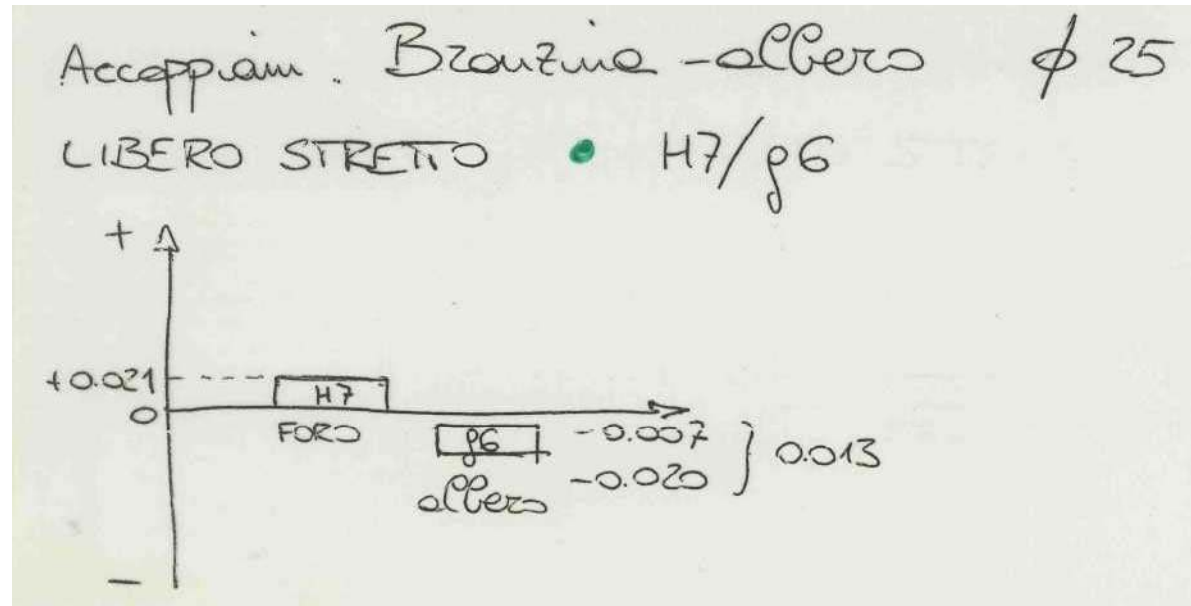 Accoppiam. Bronzina-albero ϕ 25
LIBERO STRETTO • H7/g6
+
+0.021
H7
0
FORO
g6
-0.007
-0.020
0.013
albero
-